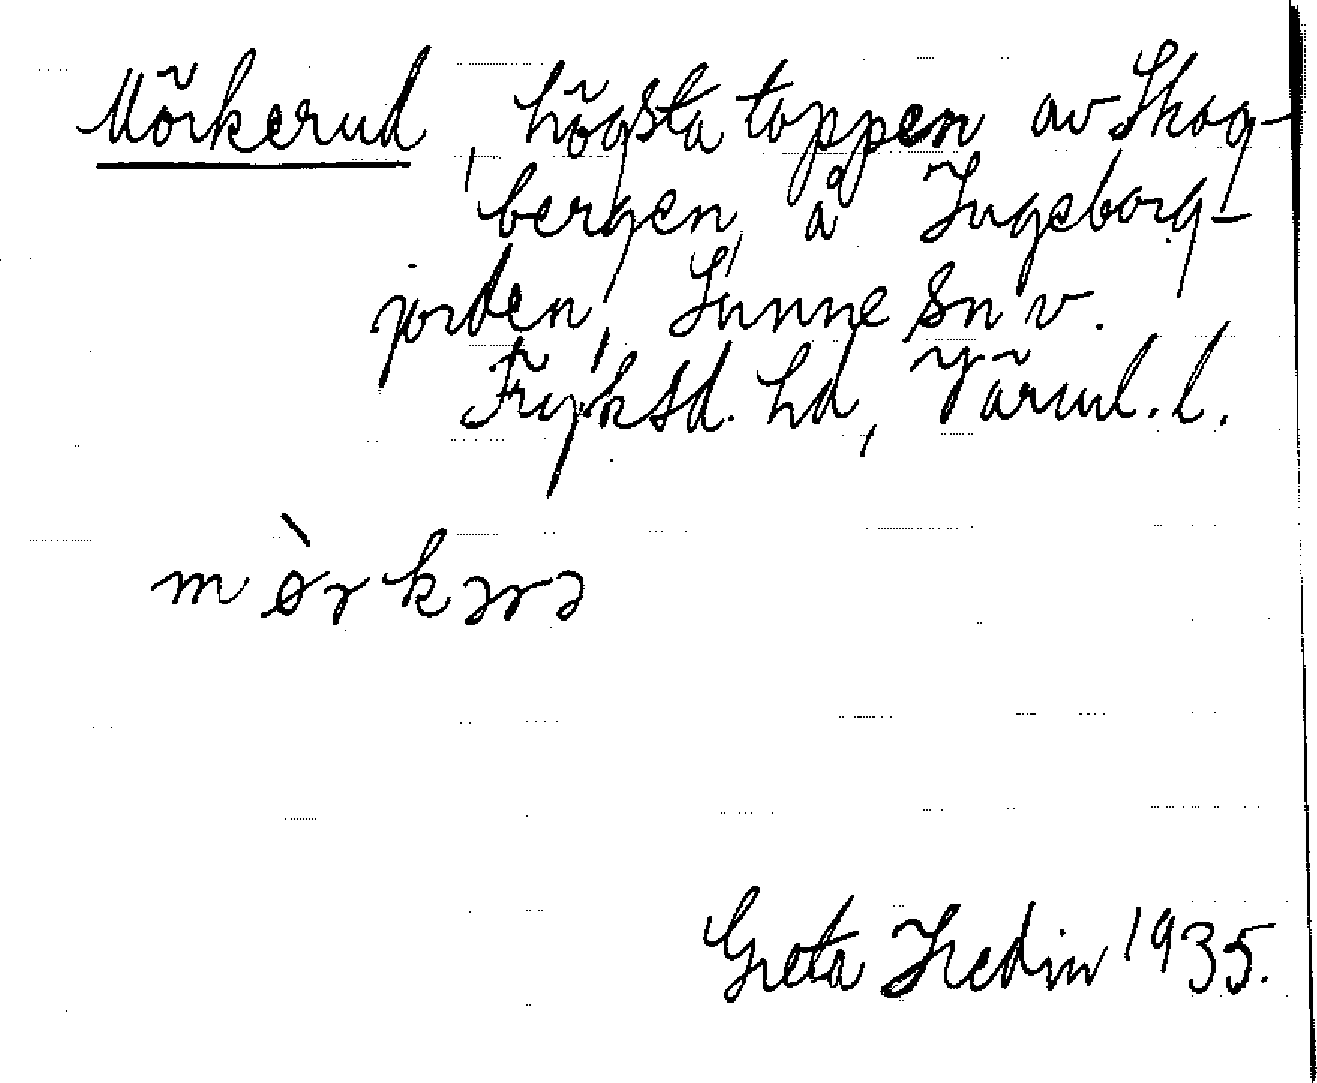 Mörkerud, högsta toppen av Skog-
bergen å Ingeborg-
jorden, Sunne sn v.
Fryksd. hd, Värml. l.
mὸrkərə
Greta Hedin 1935.